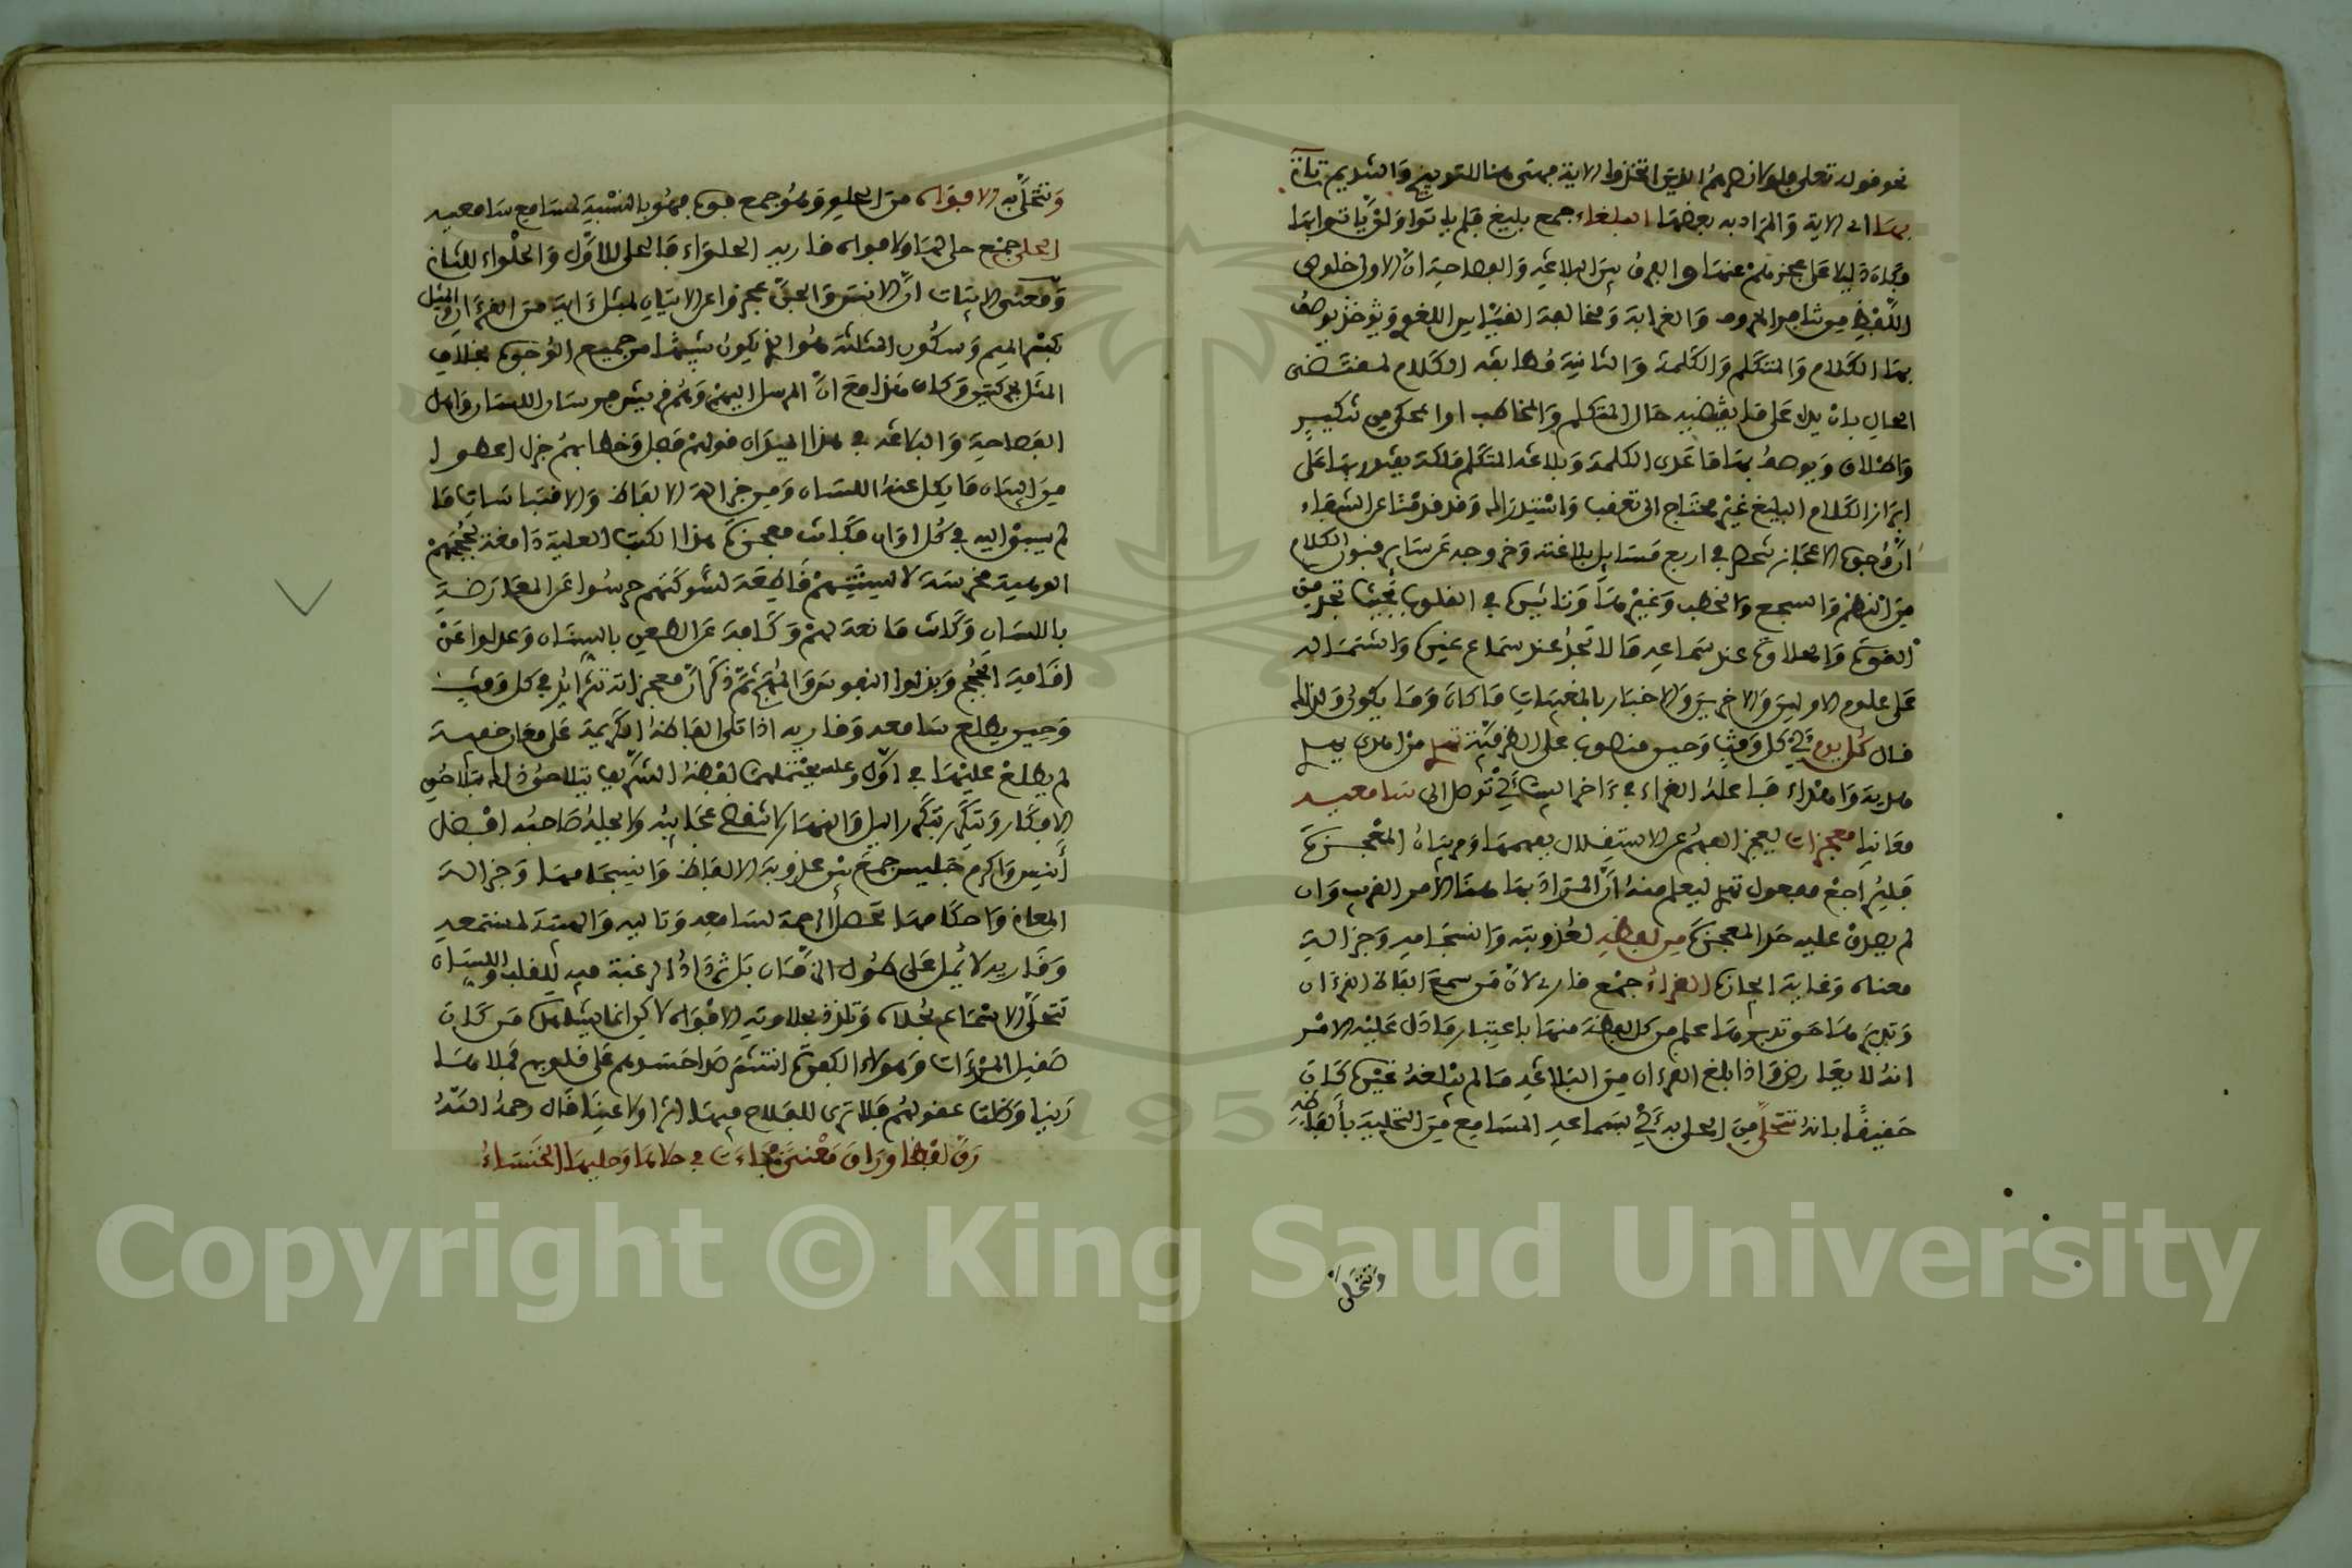 نحو قوله تعلى فلولا نصرهم الذين اتخذوا الاية فهى هنا للتوبيخ والتنديم تاتى
بها اى الاية والمراد به بعضها البلغاء جمع بليغ فلم ياتوا ولن ياتوا بها
وكان دليلا على عجزهم عنها والفرق بين البلاغة والفصاحة ان الاولى خلوص
اللفظ من تنافر الحروف والغرابة ومخالفة القياس اللغوى ويوصف
بها الكلام والمتكلم والكلمة والثانية مطابقة الكلام لمقتضى
الحال بان يدل على ما يقتضيه حال المتكلم والمخاطب او المحكى من تنكير
واطلاق ويوصف بها ما عدى الكلمة وبلاغة المتكلم ملكة يقتدر بها على
ابراز الكلام البليغ غير محتاج الى تعقب واستدراك وقد قدمنا عن الشفاء
ان وجوه الاعجاز تنحصر في اربع مسايل بلاغته وخروجه عن ساير فنون الكلام
من النظم والسجع والخطب وغيرها وتاثيره في القلوب بحيث تجد من
القوة والحلاوة عند سماعه ما لا تجد عند سماع غيره واشتماله
على علوم الاولين والاخرين والاخبار بالمغيبات ما كان وما يكون ولذلك
قال كل يوم اي كل وقت وحين منصوب على الظرفية تهدى من اهدى يهدى
هدية واهداء فاعله القراء في ءاخر البيت اي توصل الى سامعيه
معانيا معجزات لعجز الفهم عن الاستقلال بفهمها ومرتبات المعجزة
فليراجع مفعول تهدى ليعلم منه ان المراد بها هنا الامر الغريب وان
لم يصدق عليه حد المعجزة من لفظه لعذوبته وانسجامه وجزالة
معناه وغاية ايجازه القراء جمع قارئ لان من سمع الفاظ القرءان
وتدبرها حق تدبرها علم من كل لفظة منها باعتبار ما دل عليه الامر
انه لا يعارض واذا بلغ القرءان من البلاغة ما لم يبلغه غيره كان
حقيقا بانه تتحلى من الحلى به اي بسماعه المسامع من التحلية بألفاظه
وتتحلى
وتتحلى به الافواه من الحلو وهو جمع فوه فهو بالنسبة لسامع سامعيه
الحلى جمع حلى لها ولافواه قارئيه الحلواء فالحلى للاول والحلواء للثاني
ومعنى الابيات ان الانس والجن عجزوا عن الاتيان بمثل ءاية من القرءان والمثل
بكسر الميم وسكون المثلثة هو الذي يكون شبيها من جميع الوجوه بخلاف
المثل بحركتين وكان هذا مع ان المرسل اليهم وهم قريش فرسان اللسان واهل
الفصاحة والبلاغة في هذا الميدان قولهم فصل وخطابهم جزل اعطوا
من البيان ما يكل عنه اللسان ومن جزالة الالفاظ والاقتباسات ما
لم يسبقوا اليه في كل اوان فكانت معجزة هذا الكتاب العلية دامغة لحججهم
الوهمية مخرسة لالسنتهم قاطعة لشوكتهم خرسوا عن المعارضة
باللسان وكانت مانعة لهم وكافة عن الطعن بالسنان وعدلوا عن
اقامة الحجج وبذلوا النفوس والمهج ثم ذكر ان معجزاته تتزايد في كل وقت
وحين يطلع سامعه وقاريه اذا تلى الفاظه الكريمة على معان خفية
لم يطلع عليها في اول وهلة يحتملها لفظه الشريف بتلاحق ذلك بتلاحق
الافكار ويتكرر بتكرر اليل والنهار لا تنقضى عجايبه ولا يمله صاحبه افضل
أنيس واكرم جليس جمع بين عذوبة الالفاظ وانسجامها وجزالة
المعانى واحكامها تحصل الرحمة لسامعه وتاليه والهيبة لمستمعه
وقاريه لا يمل على طول الزمان بل تزداد الرغبة فيه للقلب واللسان
تتحلى الاسماع بحلاه وتلذذ بحلاوته الافواه لاكن انما يشاهده من كان
صقيل المرءات وهؤلاء الكفرة انتشر صدا حسدهم على قلوبهم فملاها
رينا وغطت عقولهم فلا ترى للفلاح فيها اثرا ولا عينا قال رحمه الله
رق لفظا وراق معنى فجاءت في حلاها وحليها الخنساء